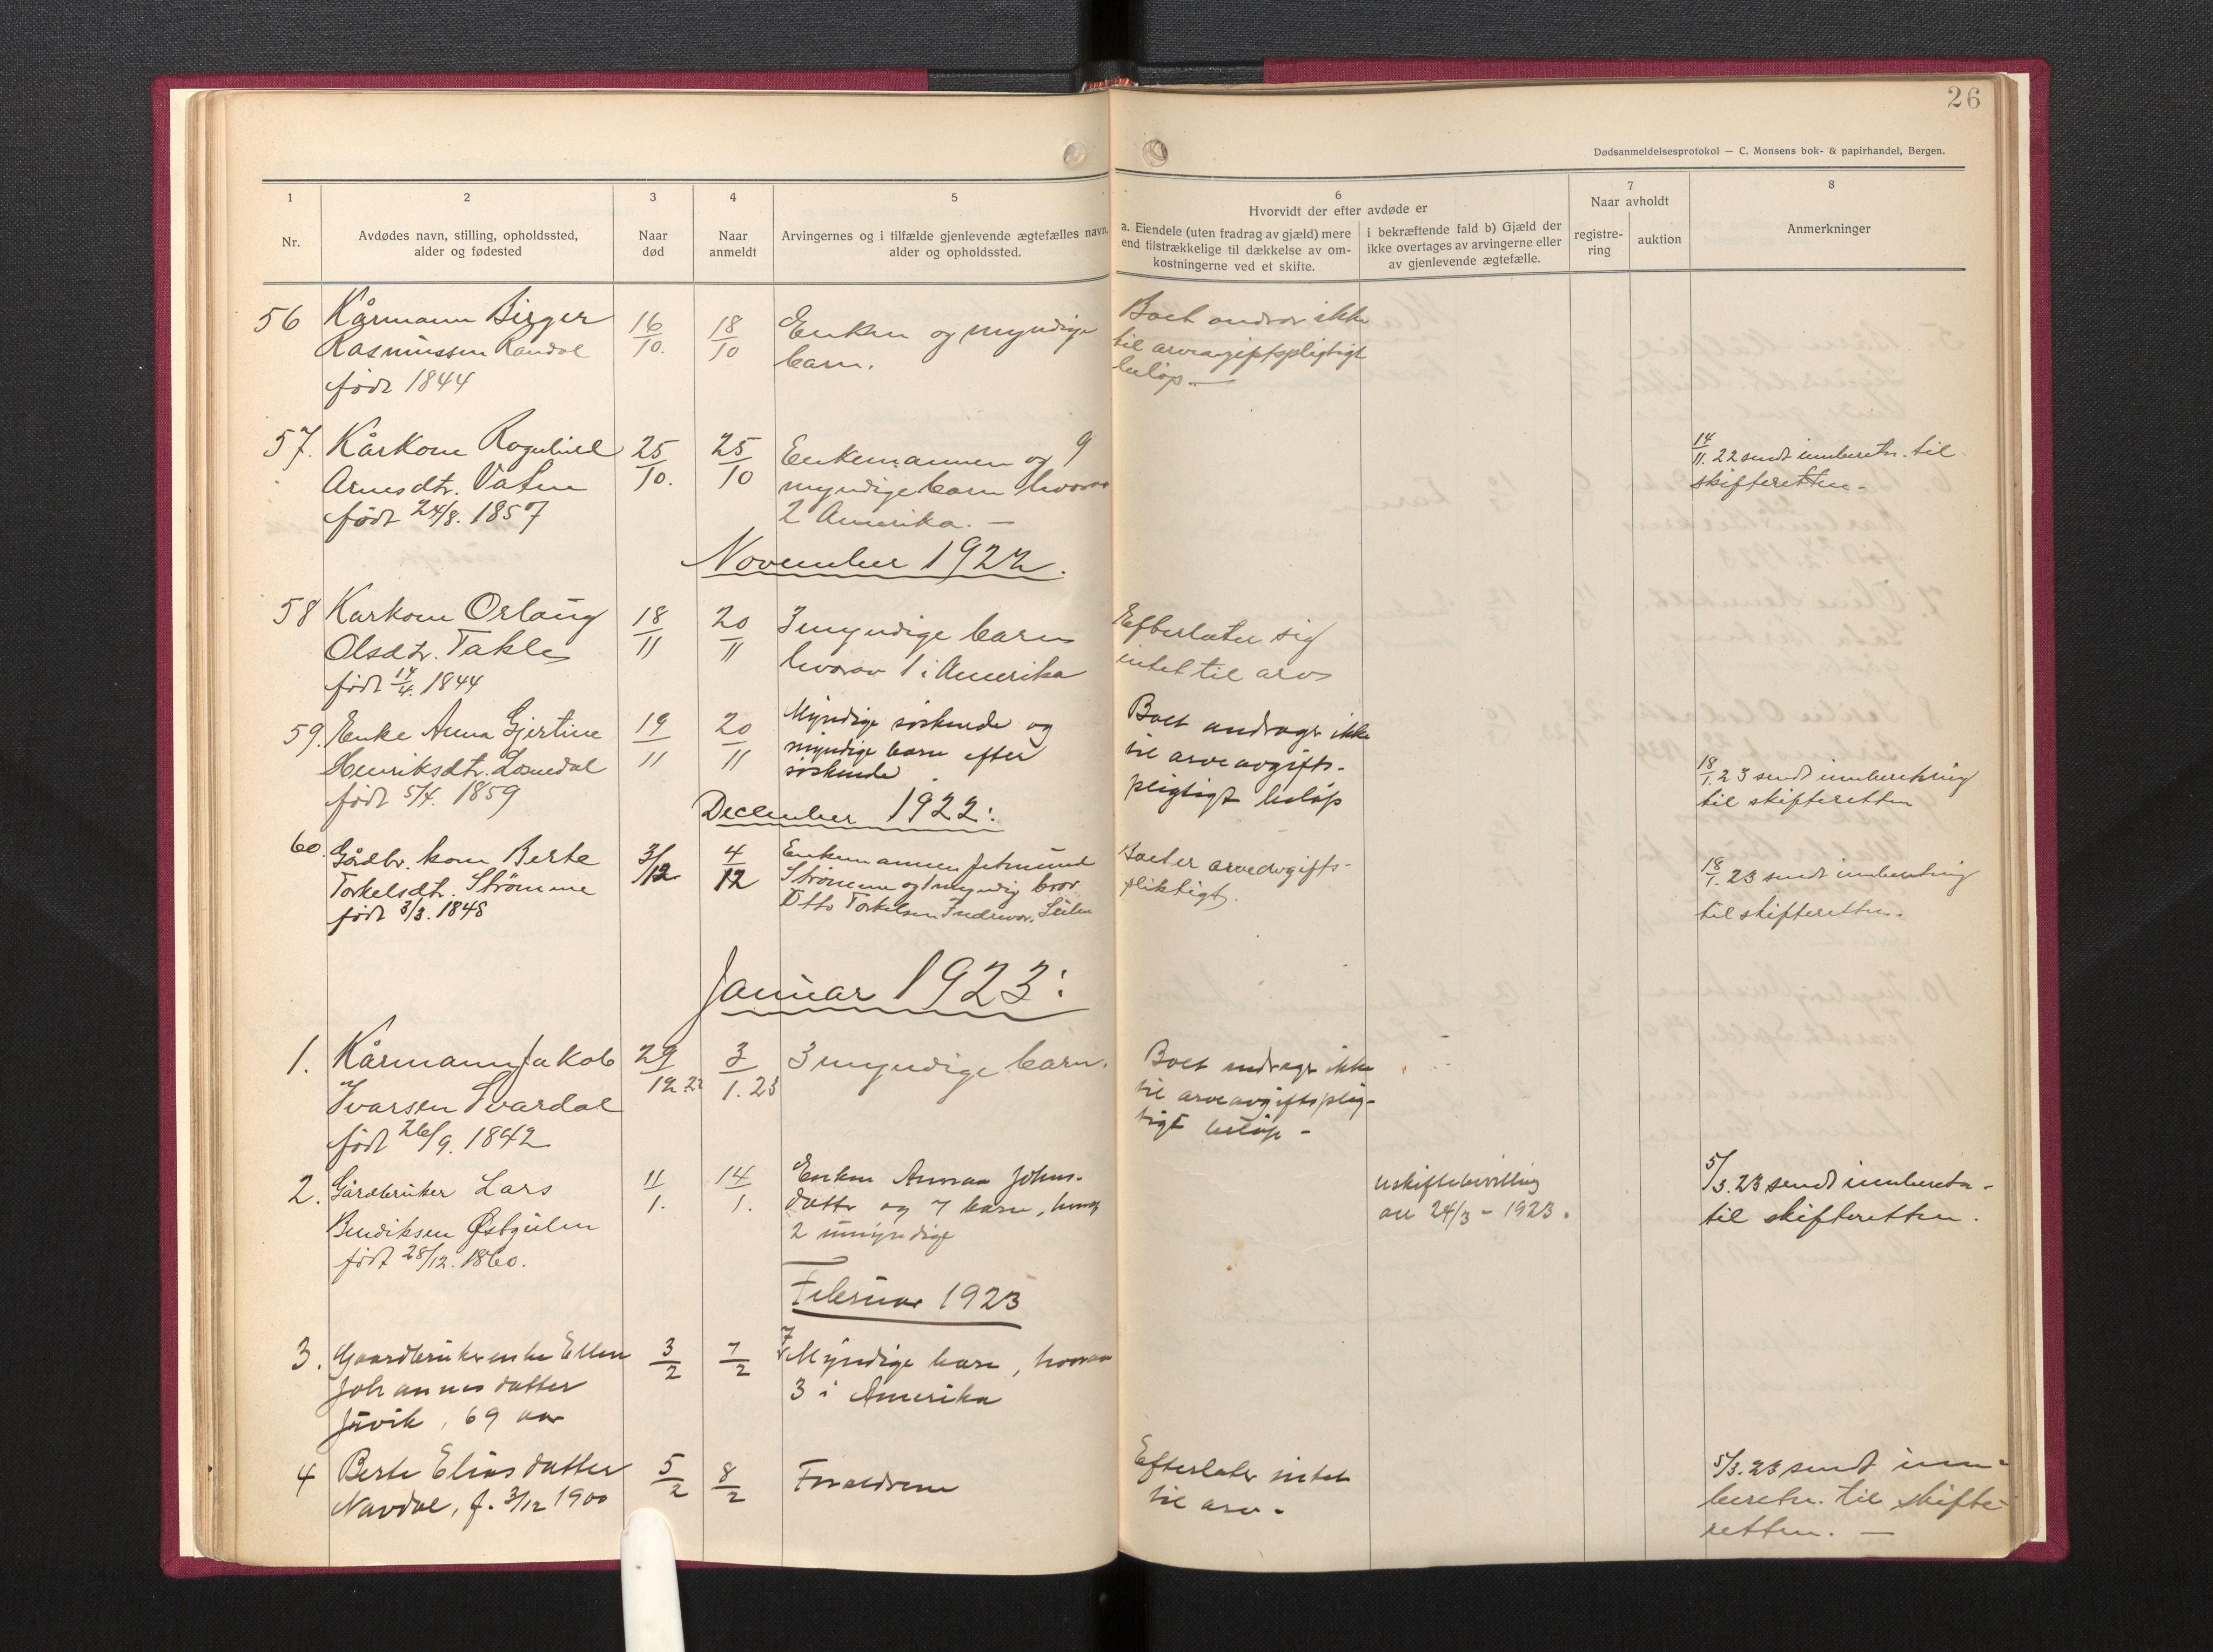 26
Dødsanmeldelsesprotokol — C. Monsens bok- & papirhandel, Bergen.
1
Nr.
2
Avdødes navn, stilling, opholdssted,
alder og fødested
3
Naar
død
4
Naar
anmeldt
5
Arvingernes og i tilfælde gjenlevende ægtefælles navn,
alder og opholdssted.
6
Hvorvidt der efter avdøde er
a. Eiendele (uten fradrag av gjæld) mere
end tilstrækkelige til dækkelse av om-
kostningerne ved et skifte.
i bekræftende fald b) Gjæld der
ikke overtages av arvingerne eller
av gjenlevende ægtefælle.
7
Naar avholdt
registre-
ring
auktion
8
Anmerkninger
56
Kårmann Birger
Rasmussen
født 1844
16/10.
18/10
Enken og myndige
barn.
Boet andrar ikke
til arveavgiftspligtigt
beløp. —
57.
Kårkone Ragnhild
Arnesdtr. Vatne
født 24/8. 1857
25/10.
25/10
Enkemannen og 9
myndige barn hvorav
2 Amerika. —
14/11. 22 sendt innberetn. til
skifteretten.
November 1922.
58
Karkone Orlaug
Olsdtr. Takle
født 14/4. 1844
18/11
20/11
3 myndige barn
hvorav 1 i Amerika
Efterlater sig
intet til arv
59.
Enke Anna Gjertine
Henriksdtr.
født 5/4. 1859
19/11
20/11
Myndige søskende og
myndige barn efter
søskende.
Boet andrager ikke
til arveavgifts-
pligtigt beløp
18/1. 23 sendt innberetning
til skifteretten
December 1922:
60.
Gårdbr. kone Berte
Torkelsdtr. Strømme
født 3/3. 1848
3/12
4/12
Enkemannen Jetmund
Strømme og 1 myndig bror
Otto Torkelsen
Boet er arveavgifts-
pliktigt.
18/1. 23 sendt innberetning
til skifteretten.
Januar 1923:
1.
Kårmann Jakob
Ivarsen Svardal
født 26/9. 1842
29/12. 22
3/1. 23
3 myndige barn.
Boet andrager ikke
til arveavgiftsplig-
tigt beløp -
2.
Gårdbruker Lars
Bendiksen Østgulen
født 28/12. 1860.
11/1.
14/1.
Enken Annaa Johns-
datter og 7 barn, hvorav
2 umyndige
uskiftebevilling
av 24/3 - 1923.
5/3. 23 sendt innberetn-
til skifteretten.
Februar 1923
3.
Gaardbruker enke Ellen
Johannesdatter
Juvik, 69 aar
3/2
7/2
7 Myndige barn, hvorav
3 i Amerika
4
Berte Eliasdatter
Navdal, f. 3/12 1900
5/2
8/2
Forældrene
Efterlater intet
til arv -
5/3. 23 sendt inn-
beretn. til skifte-
retten. —